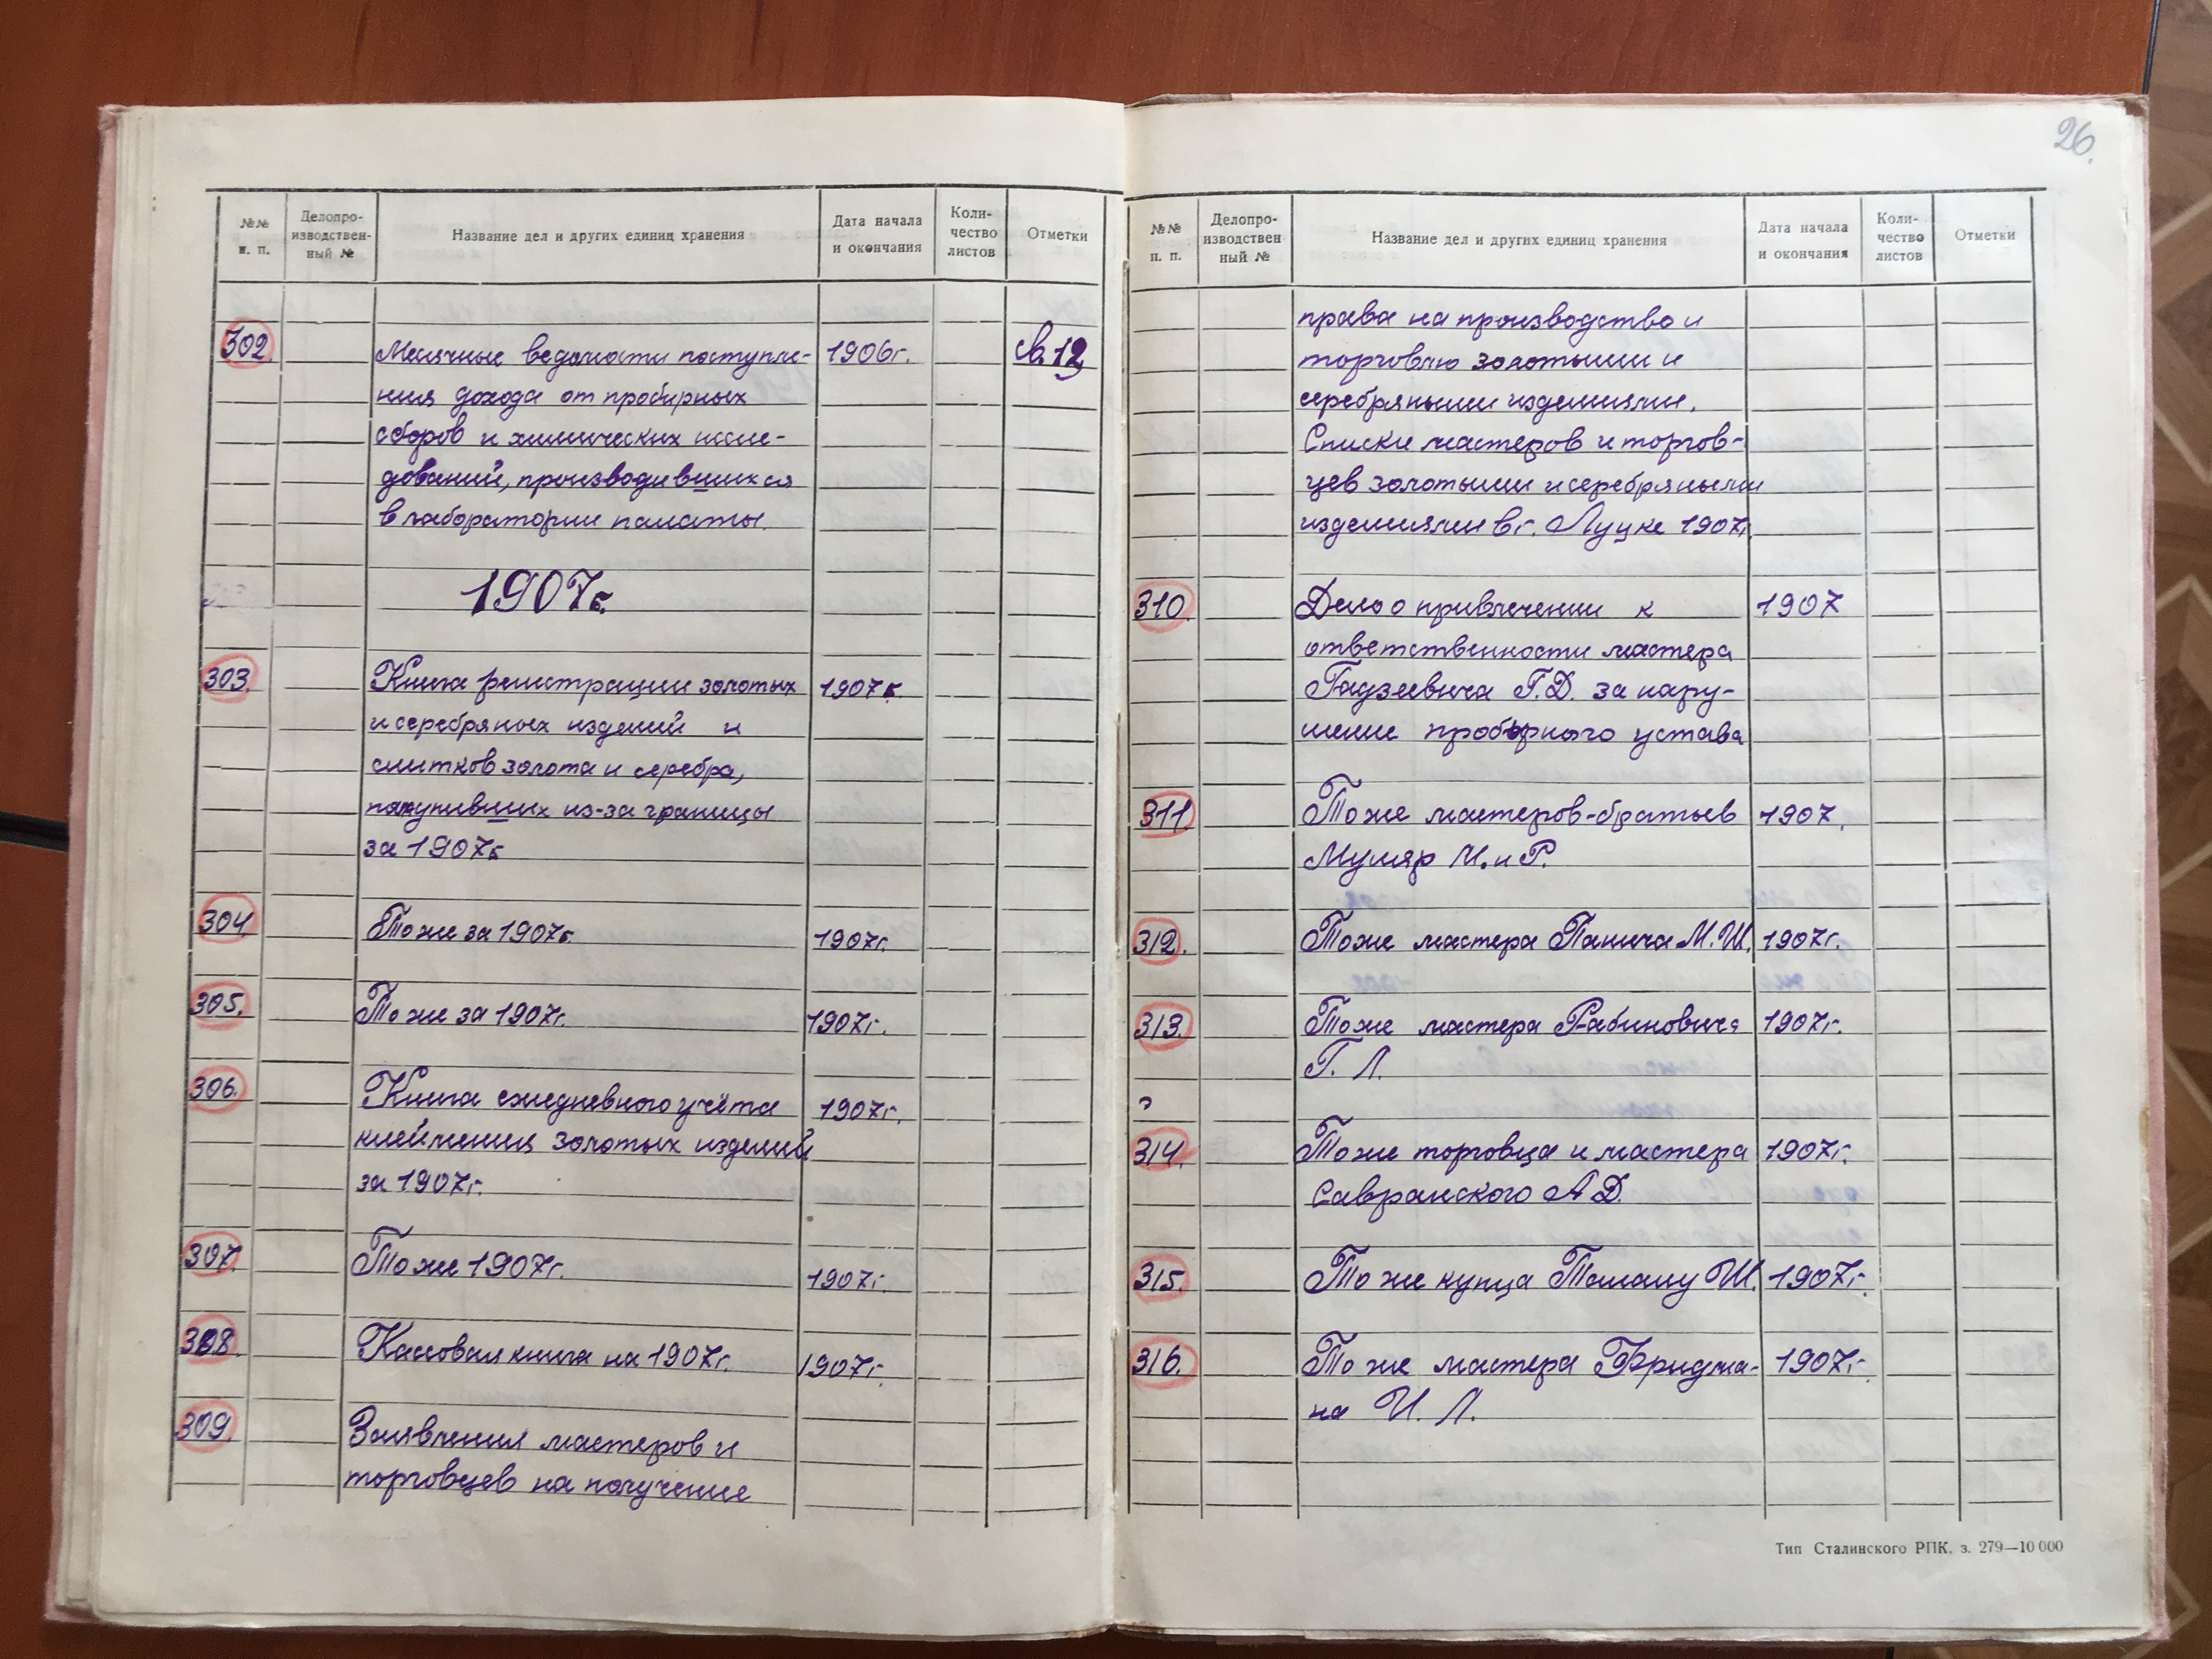 26.
№№ п. п. Делопроизводственный № Название дел и других единиц хранения Дата начала и окончания Количество листов Отметки
302. Месячные ведомости поступле- 1906г. св.12
ния дохода от пробирных
сборов и химических иссле-
дований, производившихся
в лаборатории палаты.
1907г.
303. Книга регистрации золотых 1907г.
и серебряных изделий и
слитков золота и серебра,
поступивших из-за границы
за 1907г.
304. То же за 1907г. 1907г.
305. То же за 1907г. 1907г.
306. Книга ежедневного учёта 1907г.
клеймения золотых изделий
за 1907г.
307. То же 1907г. 1907г.
308. Кассовая книга на 1907г. 1907г.
309. Заявления мастеров и
торговцев на получение
№№ п. п. Делопроизводственный № Название дел и других единиц хранения Дата начала и окончания Количество листов Отметки
права на производство и
торговлю золотыми и
серебряными изделиями.
Списки мастеров и торгов-
цев золотыми и серебряными
изделиями в г. Луцке 1907г.
310. Дело о привлечении к 1907
ответственности мастера
Гадзевича Г.Д. за нару-
шение пробирного устава
311. То же мастеров-братьев 1907.
Муляр И. и Р.
312. То же мастера Панича М.Ш. 1907г.
313. То же мастера Рабиновича 1907г.
Г. Л.
314. То же торговца и мастера 1907г.
Савранского А Д.
315. То же купца Ш. 1907г.
316. То же мастера Фридма- 1907г.
на И. Л.
Тип Сталинского РПК. з. 279—10 000